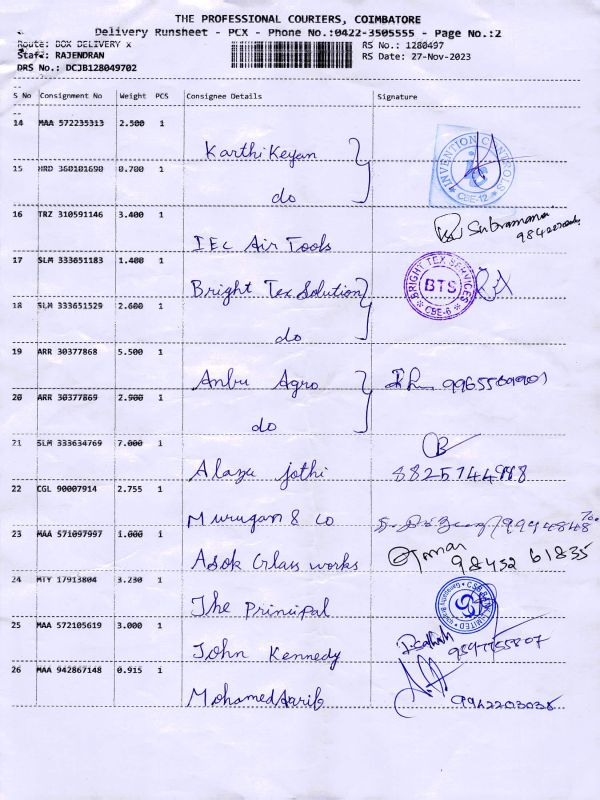 THE PROFESSIONAL COURIERS, COIMBATORE
Delivery Runsheet - PCX - Phone No.:0422-3505555 - Page No.:2
Route: BOX DELIVERY x
RS No.: 1280497
Staff: RAJENDRAN
RS Date: 27-Nov-2023
DRS No.: DCJB128049702
S No Consignment No Weight PCS Consignee Details Signature
14 MAA 572235313 2.500 1
Karthikeyan
INVENTION CONTROLS CBE-12
15 HRD 360101690 0.700 1
do
16 TRZ 310591146 3.400 1
IEC Air Tools
17 SLM 333651183 1.400 1
Bright Tex Solution
BRIGHT TEX SERVICES BTS CBE-6
18 SLM 333651529 2.600 1
do
19 ARR 30377868 5.500 1
Anbu Agro
20 ARR 30377869 2.900 1
do
21 SLM 333634769 7.000 1
Alagu jothi
22 CGL 90007914 2.755 1
Murugan & co
23 MAA 571097997 1.000 1
Asok Glass works
98452 61835
24 MTY 17913804 3.230 1
The Principal
25 MAA 572105619 3.000 1
John Kennedy
26 MAA 942867148 0.915 1
Mohamed Aarib